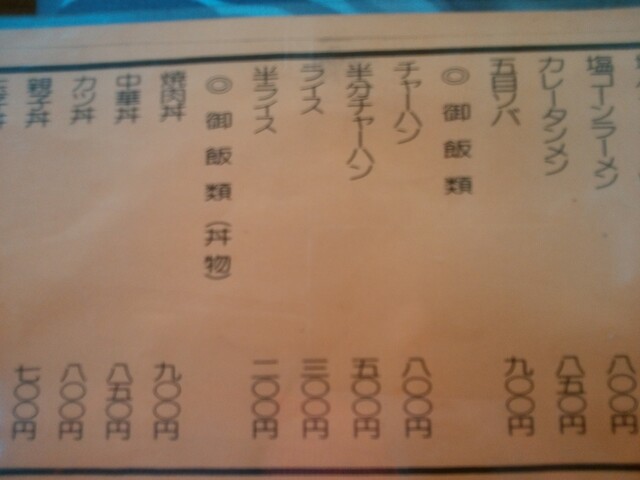 塩コーンラーメン 八〇〇円
カレータンメン 八五〇円
五目ソバ 九〇〇円
◎ 御飯類
チャーハン 八〇〇円
半分チャーハン 五〇〇円
ライス 三〇〇円
半ライス 二〇〇円
◎ 御飯類(丼物)
焼肉丼 九〇〇円
中華丼 八五〇円
カツ丼 八〇〇円
親子丼 七〇〇円